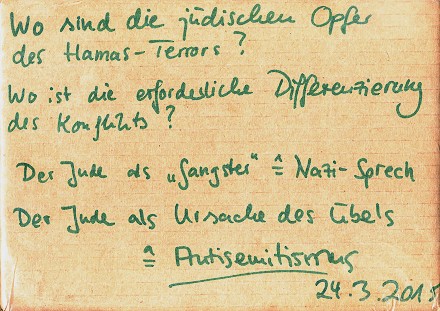 Wo sind die jüdischen Opfer
des Hamas-Terrors?
Wo ist die erforderliche Differenzierung
des Konflikts?
Der Jude als „Gangster“ ≙ Nazi-Sprech
Der Jude als Ursache des Übels
≙ Antisemitismus
24.3.2018